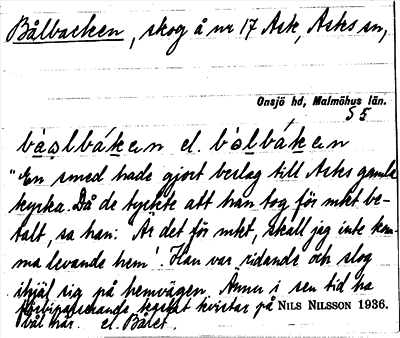 Bålbacken, skog å nr 17 Ask, Asks sn,
Onsjö hd, Malmöhus län.
55
bàa̯lbákɛn el. bòlbákɛn
"En smed hade gjort beslag till Asks gamla
kyrka. Då de tyckte att han tog för mkt be-
talt, sa han: 'Är det för mkt, skall jag inte kom-
ma levande hem'. Han var ridande och slog
ihjäl sig på hemvägen. Ännu i sen tid ha
förbipasserande kastat kvistar på
NILS NILSSON 1936.
bål här. el. Bålet.